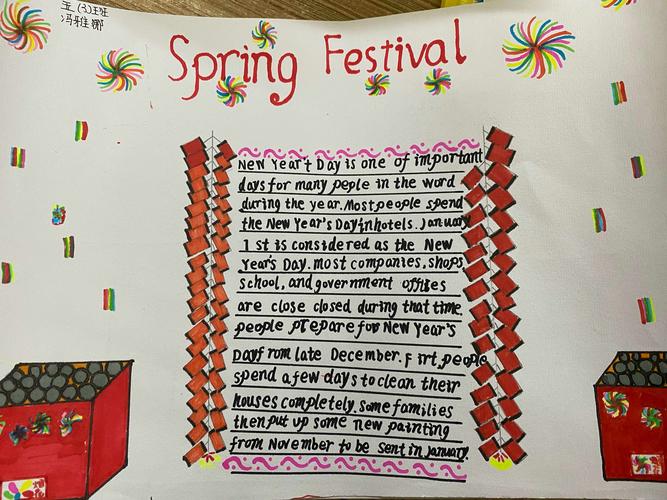 五(3)班
冯雅娜
Spring Festival
New Year't Day is one of important
days for many peple in the word
during the year. Most people spend
the New Year's Day in hotels. January
1 st is considered as the New
Year's Day. most companies, shops
school, and government offties
are close closed during that time.
people prepare for New Year's
Day from late December. Firt, people
spend a few days to clean their
houses completely. some families
then put up some new painting
from November to be sent in january.